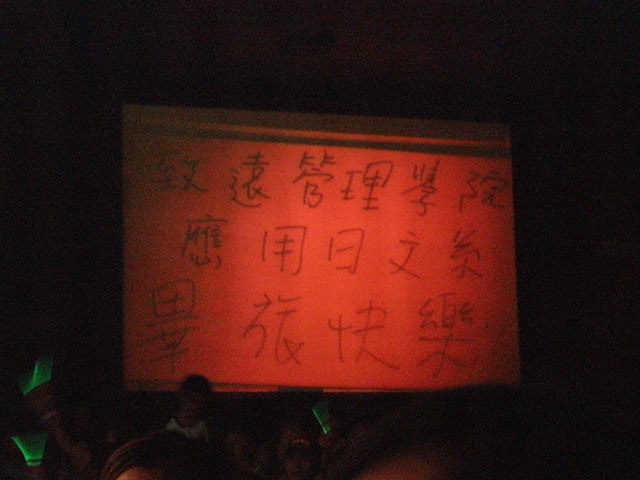 致遠管理學院
應用日文系
畢旅快樂